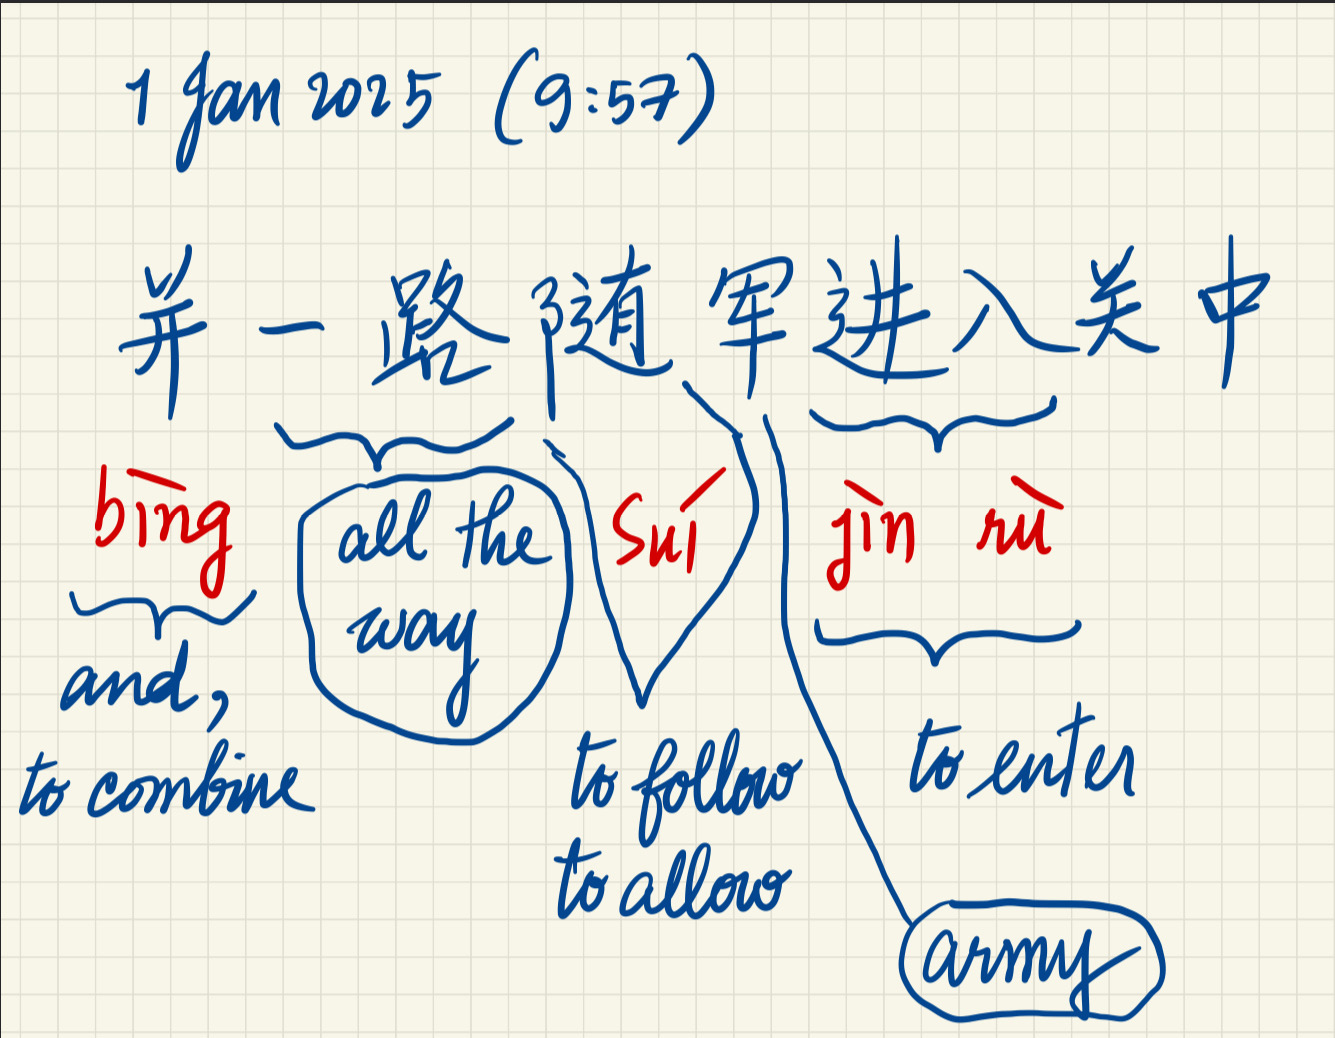 1 Jan 2025 (9:57)
并一路随军进入关中
bìng all the way suí jìn rù
and, to combine
to follow
to allow
to enter
army